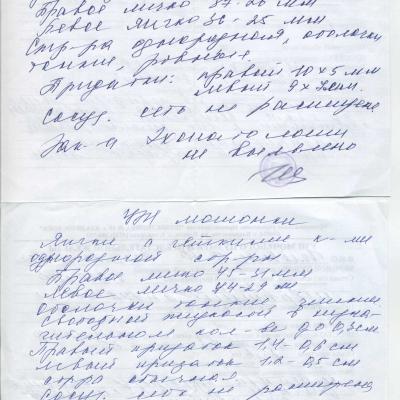 Правое яичко 37-26 мм
левое яичко 36-25 мм
Стр-ра однородная, оболочки
тонкие, ровные.
Придатки: правый 10х5 мм
левый 9х
сосуд. сеть не расширена
Зак-е Эхопатологии
не выявлено
УЗИ мошонки
Яички с четкими к-ми
однородной стр-ры
Правое яичко 45-31 мм
Левое яичко 44-29 мм
оболочки тонкие
свободной жидкости в незна-
чительном кол-ве до 0,3 см
Правый придаток 1,4-0,6 см
левый придаток 1,2-0,5 см
стр-ра обычная
сосуд. сеть не расширена